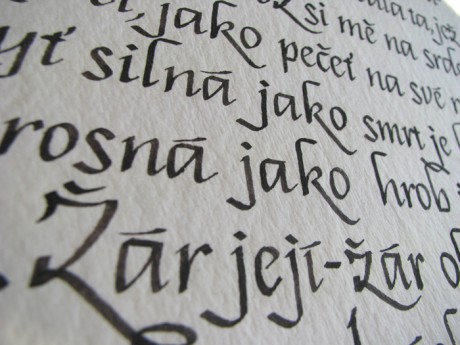 jako
si mě na srdc
jako pečeť na své r
silná jako smrt je l
rosná jako hrob
Žár její-žár o